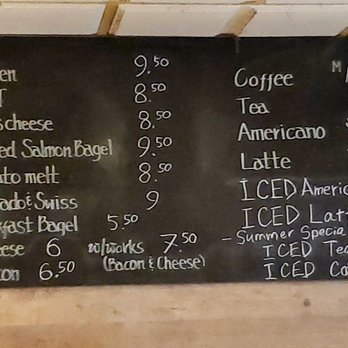 en 9.50
T 8.50
cheese 8.50
ed Salmon Bagel 9.50
to melt 8.50
ado & Swiss 9
fast Bagel 5.50
ese 6 w/works 7.50
on 6.50 (Bacon & Cheese)
Coffee M
Tea
Americano
Latte
ICED Americ
ICED Latt
- Summer Specia
ICED Tea
ICED Co